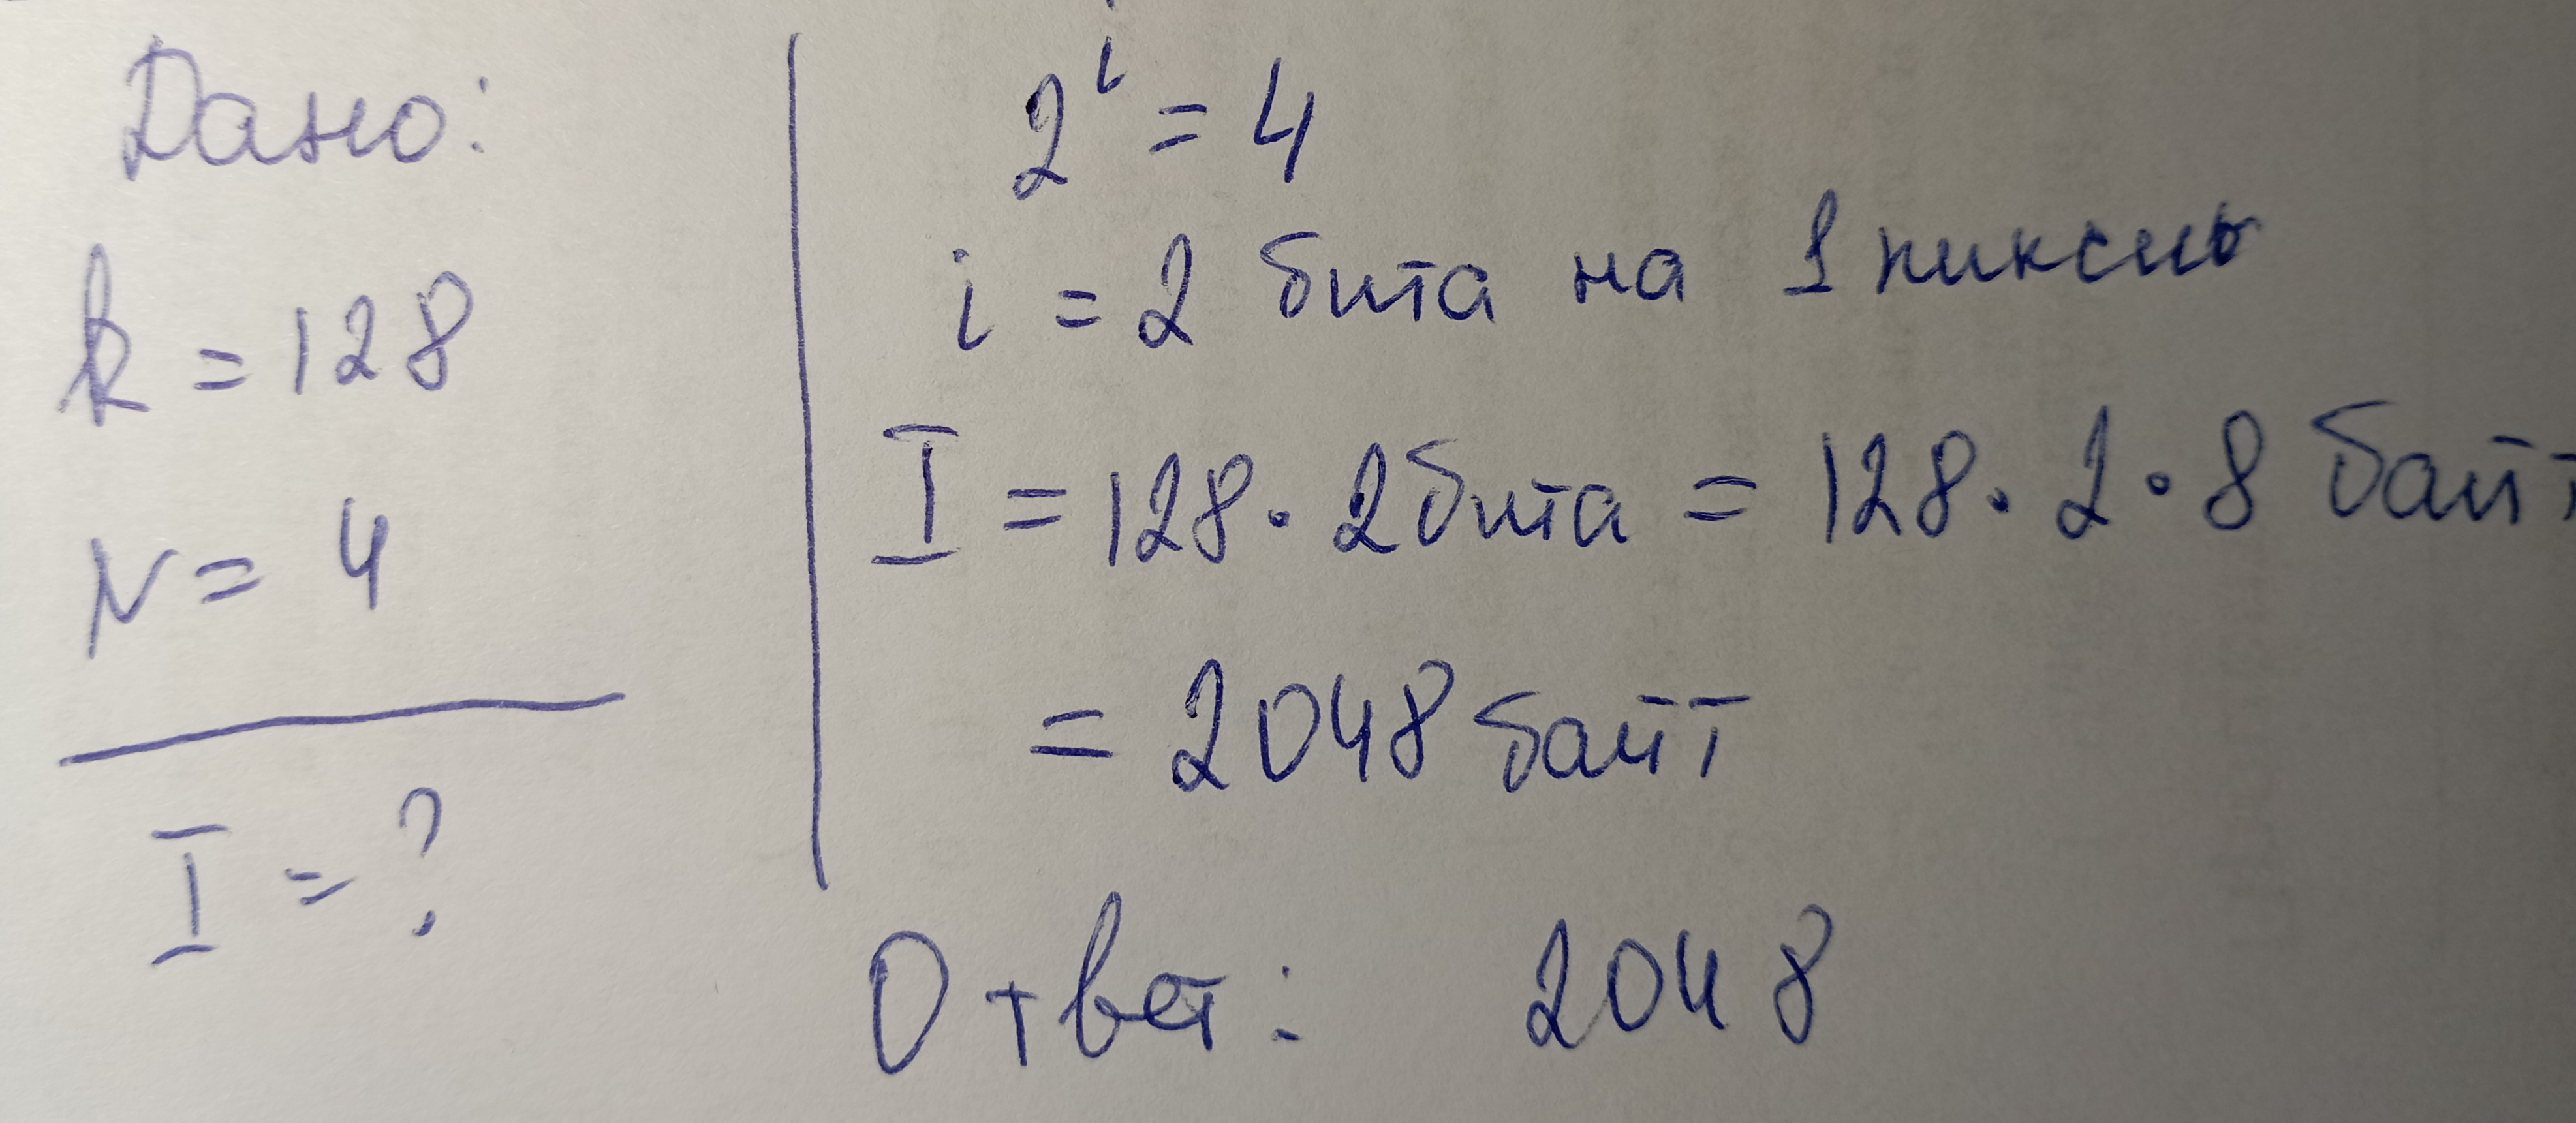 Дано:
k = 128
N = 4
I = ?
2^i = 4
i = 2 бита на 1 пиксель
I = 128 · 2 бита = 128 · 2 · 8 байт
= 2048 байт
Ответ: 2048